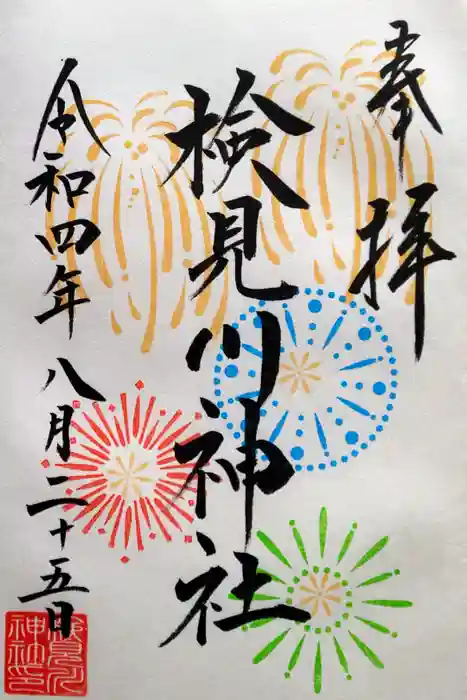 奉拝
検見川神社
令和四年 八月二十五日
検見川
神社印